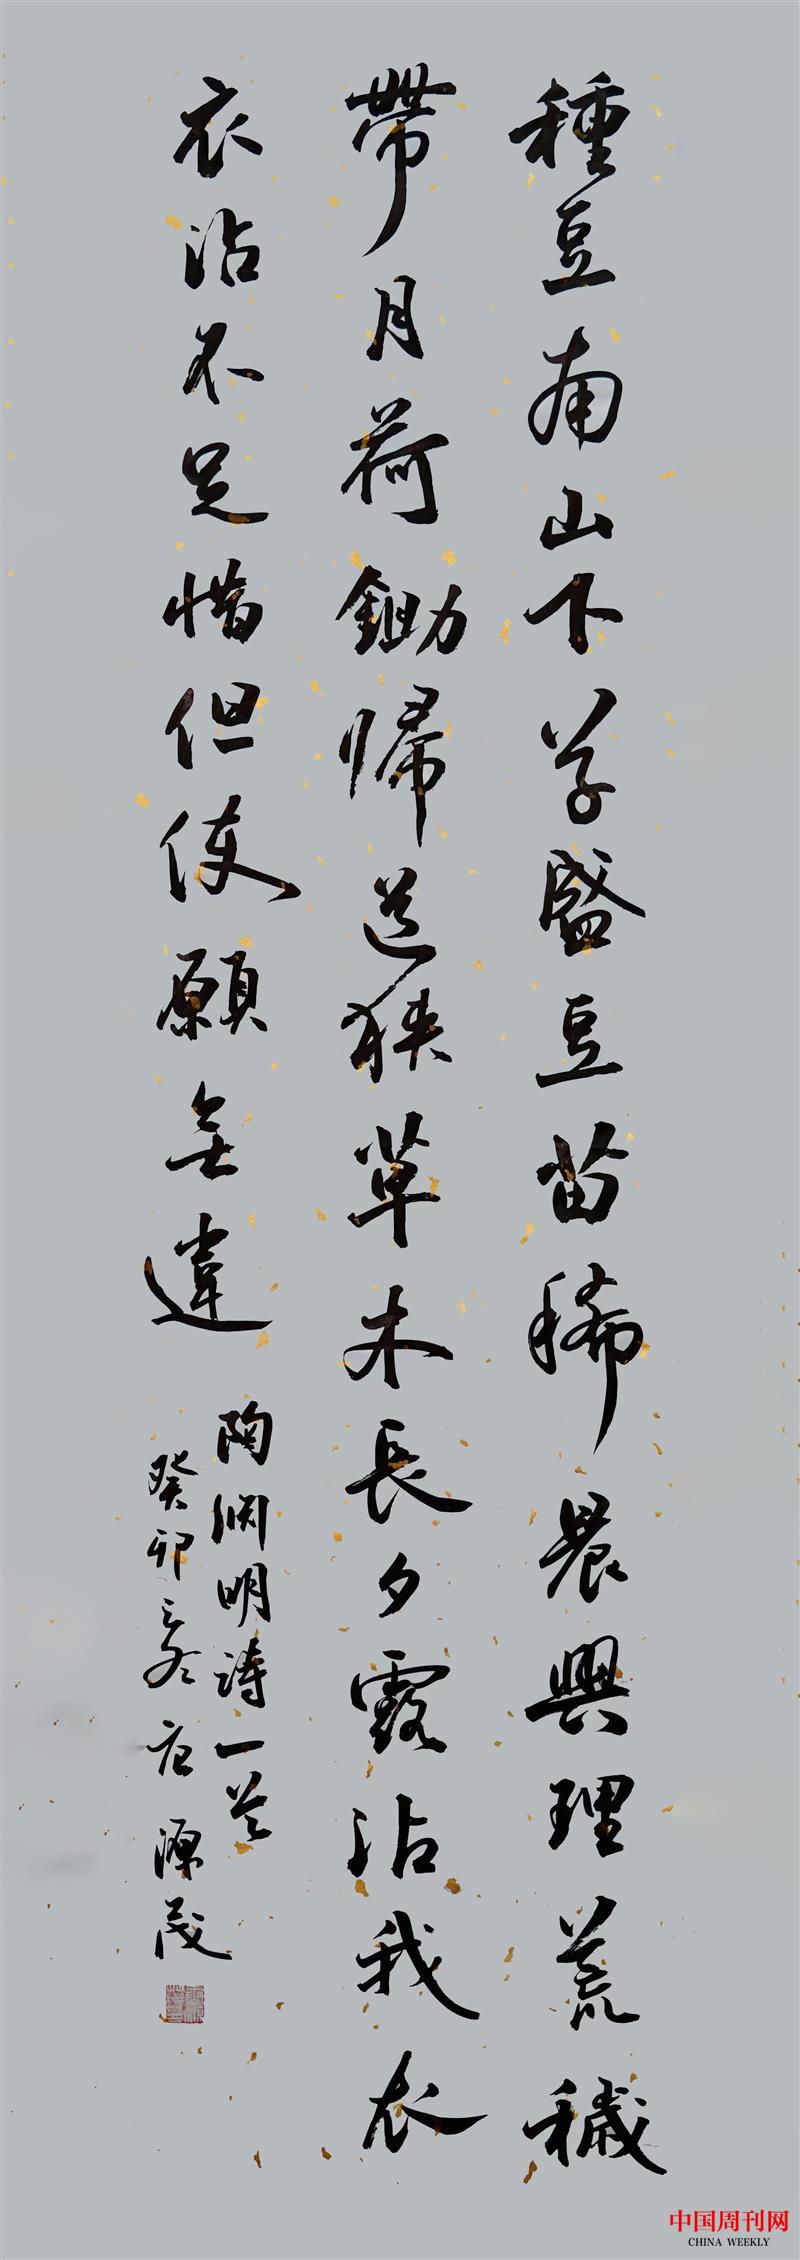 種豆南山下草盛豆苗稀晨興理荒穢
帶月荷鋤歸道狹草木長夕露沾我衣
衣沾不足惜但使願無違
陶渊明詩一首
癸卯 源茂
中国周刊网
CHINA WEEKLY